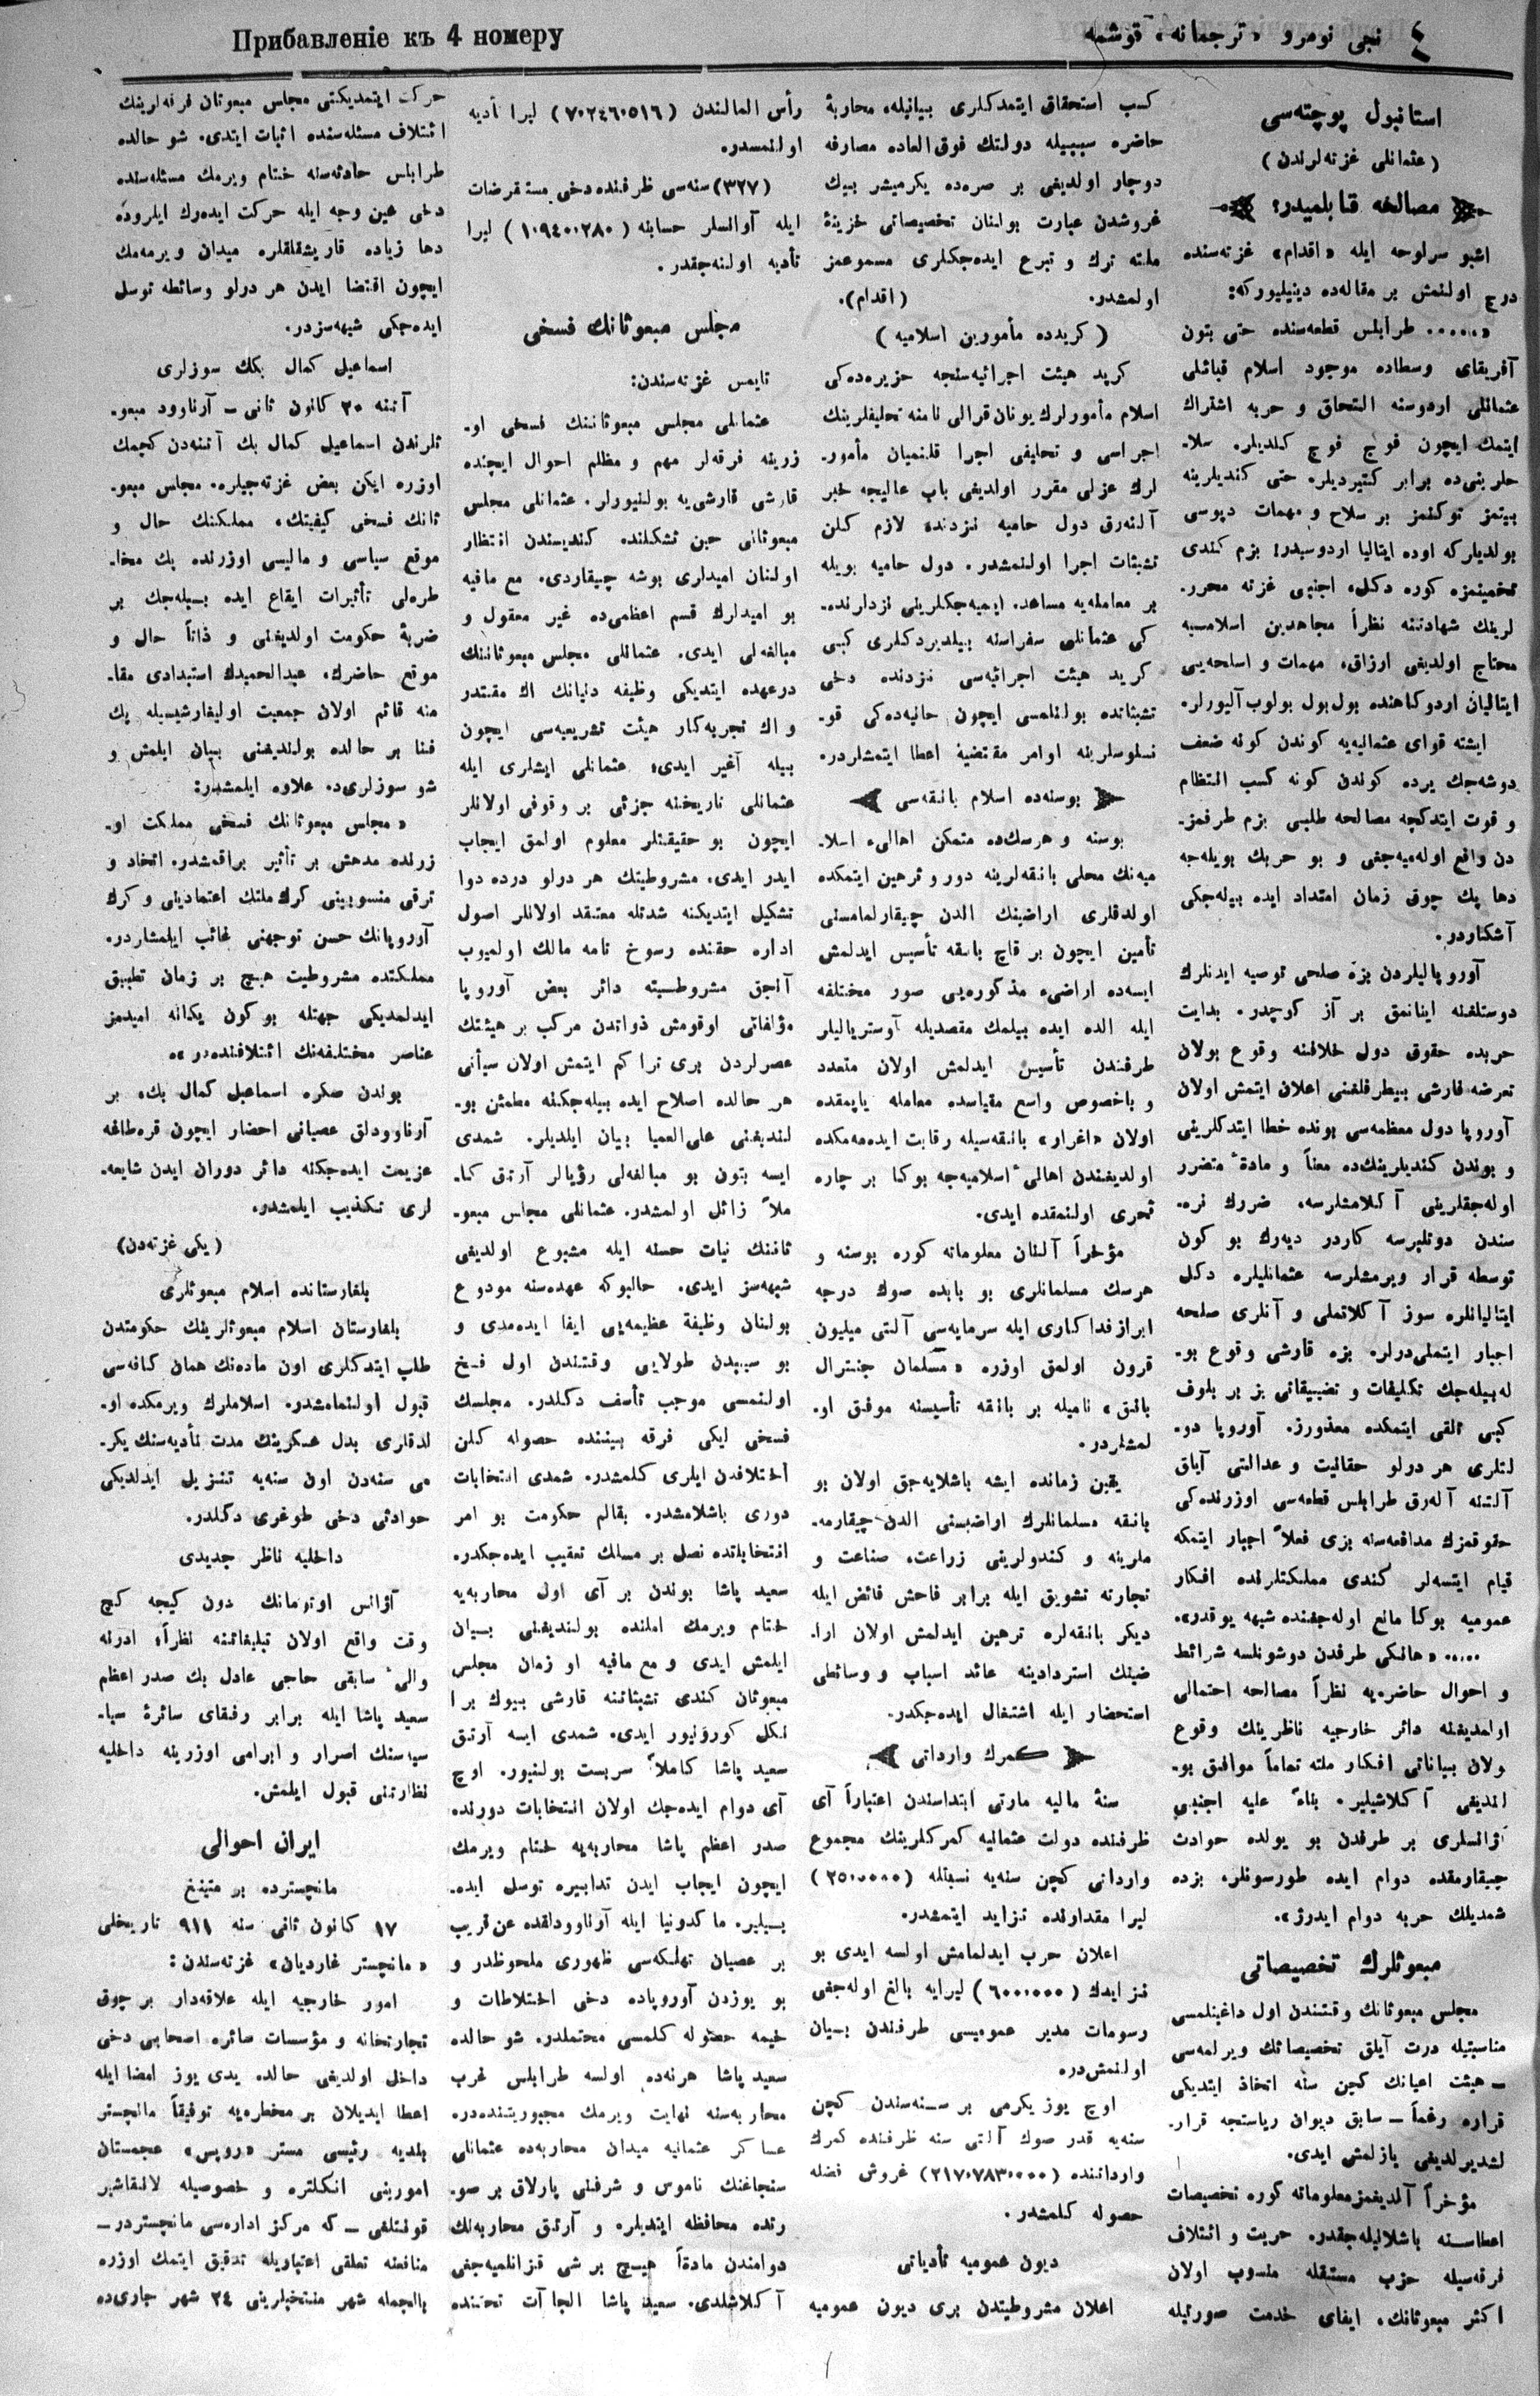 Прибавленіе къ 4 номеру
٤ نجی نومرو «ترجمانه» قوشمه
استانبول پوچته‌سی
(عثمانلی غزته‌لرندن)
مصالحه قابلمیدر؟
اشبو سرلوحه ایله «اقدام» غزته‌سنده
درج اولنمش بر مقاله‌ده دینیلیورکه:
«...... طرابلس قطعه‌سنده حتی بتون
آفریقای وسطاده موجود اسلام قبائلی
عثمانلی اردوسنه التحاق و حربه اشتراك
ایتمك ایچون فوج فوج کلدیلر. سلا-
حلرینی‌ده برابر کتیردیلر. حتی کندیلرینه
بیتمز توکنمز بر سلاح و مهمات دپوسی
بولدیلرکه اوده ایتالیا اردوسیدر! بزم کندی
تخمینمزه کوره دکل، اجنبی غزته محرر-
لرینك شهادتنه نظراً مجاهدین اسلامیه
محتاج اولدیغی ارزاق، مهمات و اسلحه‌یی
ایتالیان اردوکاهنده بول بول بولوب آلیورلر.
ایشته قوای عثمانیه‌یه کوندن کونه ضعف
دوشه‌جك یرده کوندن کونه کسب انتظام
و قوت ایتدکچه مصالحه طلبی بزم طرفمز-
دن واقع اوله‌میه‌جغی و بو حربك بویله‌جه
دها پك چوق زمان امتداد ایده بیله‌جکی
آشکاردر.
آوروپالیلردن بزه صلحی توصیه ایدنلرك
دوستلغنه اینانمق بر آز کوچدر. بدایت
حربده حقوق دول خلافنه وقوع بولان
تعرضه قارشی بیطرفلغنی اعلان ایتمش اولان
آوروپا دول معظمه‌سی بونده خطا ایتدکلرینی
و بوندن کندیلرینك‌ده معناً و مادةً متضرر
اوله‌جقلرینی آکلامشلرسه، ضررك نره-
سندن دونلیرسه کاردر دیه‌رك بو کون
توسطه قرار ویرمشلرسه عثمانلیلره دکل
ایتالیانلره سوز آکلاتملی و آنلری صلحه
اجبار ایتملی‌درلر. بزه قارشی وقوع بو-
له‌بیله‌جك تکلیفات و تضییقاتی بز بر بلوف
کبی تلقی ایتمکده معذورز. آوروپا دو-
لتلری هر درلو حقانیت و عدالتی آیاق
آلتنه آله‌رق طرابلس قطعه‌سی اوزرنده‌کی
حقوقمزك مدافعه‌سنه بزی فعلاً اجبار ایتمکه
قیام ایتسه‌لر کندی مملکتلرنده افکار
عمومیه بوکا مانع اوله‌جغنده شبهه یوقدر».
..... «هانکی طرفدن دوشونلسه شرائط
و احوال حاضره‌یه نظراً مصالحه احتمالی
اولمدیغنه دائر خارجیه ناظرینك وقوع
بولان بیاناتی افکار ملته تماماً موافق بو-
لندیغی آکلاشیلیر. بناءً علیه اجنبی
آژانسلری بر طرفدن بو یولده حوادث
چیقارمقده دوام ایده طورسونلر، بزده
شمدیلك حربه دوام ایدرز».
مبعوثلرك تخصیصاتی
مجلس مبعوثانك وقتندن اول داغیتلمسی
مناسبتیله درت آیلق تخصیصاتك ویرلمه‌سی
ـ هیئت اعیانك کچن سنه اتخاذ ایتدیکی
قراره رغماً ـ سابق دیوان ریاستجه قرار-
لشدیرلدیغی یازلمش ایدی.
مؤخراً آلدیغمز معلوماته کوره تخصیصات
اعطاسنه باشلانیله‌جقدر. حریت و ائتلاف
فرقه‌سیله حزب مستقله منسوب اولان
اکثر مبعوثانك، ایفای خدمت صورتیله
کسب استحقاق ایتمدکلری بیانیله، محاربهٔ
حاضره سببیله دولتك فوق العاده مصارفه
دوچار اولدیغی بر صره‌ده یکرمیشر بیك
غروشدن عبارت بولنان تخصیصاتی خزینهٔ
ملته ترك و تبرع ایده‌جکلری مسموعمز
اولمشدر. (اقدام).
(کریدده مأمورین اسلامیه)
کرید هیئت اجرائیه‌سنجه جزیره‌ده‌کی
اسلام مأمورلرك یونان قرالی نامنه تحلیفلرینك
اجراسی و تحلیفی اجرا قلنمیان مأمور-
لرك عزلی مقرر اولدیغی باب عالیجه خبر
آلنه‌رق دول حامیه نزدنده لازم کلن
تشبثات اجرا اولنمشدر. دول حامیه بویله
بر معامله‌یه مساعده ایتمیه‌جکلرینی نزدلرنده-
کی عثمانلی سفراسنه بیلدیردکلری کبی
کرید هیئت اجرائیه‌سی نزدنده دخی
تشبثاتده بولنلمسی ایچون حانیه‌ده‌کی قو-
نسلوسلرینه اوامر مقتضیه اعطا ایتمشلردر.
بوسنه‌ده اسلام بانقه‌سی
بوسنه و هرسك‌ده متمکن اهالی اسلا-
میه‌نك محلی بانقه‌لرینه دور و ترهین ایتمکده
اولدقلری اراضینك الدن چیقارلمامسنی
تأمین ایچون بر قاچ بانقه تأسیس ایدلمش
ایسه‌ده اراضیء مذکوره‌یی صور مختلفه
ایله الده ایده بیلمك مقصدیله آوستریالیلر
طرفندن تأسیس ایدلمش اولان متعدد
و باخصوص واسع مقیاسده معامله یاپمقده
اولان «اغرار» بانقه‌سیله رقابت ایده‌مه‌مکده
اولدیغندن اهالیٔ اسلامیه‌جه بوکا بر چاره
تحری اولنمقده ایدی.
مؤخراً آلنان معلوماته کوره بوسنه و
هرسك مسلمانلری بو بابده صوك درجه
ابراز فداکاری ایله سرمایه‌سی آلتی میلیون
قرون اولمق اوزره «مسلمان جنترال
بانق» نامیله بر بانقه تأسیسنه موفق او-
لمشلردر.
یقین زمانده ایشه باشلایه‌جق اولان بو
بانقه مسلمانلرك اراضیسنی الدن چیقارمه-
ملرینه و کندولرینی زراعت، صناعت و
تجارته تشویق ایله برابر فاحش فائض ایله
دیکر بانقه‌لره ترهین ایدلمش اولان ارا-
ضینك استردادینه عائد اسباب و وسائطی
استحضار ایله اشتغال ایده‌جکدر.
کمرك وارداتی
سنهٔ مالیه مارتی ابتداسندن اعتباراً آی
ظرفنده دولت عثمانیه کمرکلرینك مجموع
وارداتی کچن سنه‌یه نسبتله (٢٥٠٠٠٠٠)
لیرا مقدارنده تزاید ایتمشدر.
اعلان حرب ایدلمامش اولسه ایدی بو
تزایدك (٦٠٠٠٠٠) لیرایه بالغ اوله‌جغی
رسومات مدیر عمومیسی طرفندن بیان
اولنمش‌در.
اوچ یوز یکرمی بر سنه‌سندن کچن
سنه‌یه قدر صوك آلتی سنه ظرفنده کمرك
وارداتنده (٢١٧٠٧٨٣٠٠٠٠) غروش فضله
حصوله کلمشدر.
دیون عمومیه تأدیاتی
اعلان مشروطیتدن بری دیون عمومیه
رأس المالندن (٧٠٢٤٦٠٥١٦) لیرا تأدیه
اولنمسدر.
(٣٢٧) سنه‌سی ظرفنده دخی مستقرضات
ایله آوانسلر حسابنه (١٠٩٤٠٠٢٨٠) لیرا
تأدیه اولنه‌جقدر.
مجلس مبعوثانك فسخی
تایمس غزته‌سندن:
عثمانلی مجلس مبعوثاننك فسخی او-
زرینه فرقه‌لر مهم و مظلم احوال ایچنده
قارشی قارشی‌یه بولنیورلر. عثمانلی مجلس
مبعوثانی حین تشکلنده کندیسندن انتظار
اولنان امیدلری بوشه چیقاردی. مع مافیه
بو امیدلرك قسم اعظمی‌ده غیر معقول و
مبالغه‌لی ایدی. عثمانلی مجلس مبعوثاننك
درعهده ایتدیکی وظیفه دنیانك اك مقتدر
و اك تجربه‌کار هیئت تشریعیه‌سی ایچون
بیله آغیر ایدی؛ عثمانلی ایشلری ایله
عثمانلی تاریخنه جزئی بر وقوفی اولانلر
ایچون بو حقیقتلر معلوم اولمق ایجاب
ایدر ایدی. مشروطیتك هر درلو درده دوا
تشکیل ایتدیکنه شدتله معتقد اولانلر اصول
اداره حقنده رسوخ تامه مالك اولمیوب
آنجق مشروطیته دائر بعض آوروپا
مؤلفاتی اوقومش ذواتدن مرکب بر هیئتك
عصرلردن بری تراکم ایتمش اولان سیأتی
هر حالده اصلاح ایده بیله‌جکنه مطمئن بو-
لندیغنی علی‌العمیا بیان ایلدیلر. شمدی
ایسه بتون بو مبالغه‌لی رؤیالر آرتق کا-
ملاً زائل اولمشدر. عثمانلی مجلس مبعو-
ثاننك نیات حسنه ایله مشبوع اولدیغی
شبهه‌سز ایدی. حالبوکه عهده‌سنه مودوع
بولنان وظیفهٔ عظیمه‌یی ایفا ایده‌مدی و
بو سببدن طولایی وقتندن اول فسخ
اولنمسی موجب تأسف دکلدر. مجلسك
فسخی ایکی فرقه بیننده حصوله کلن
اختلافدن ایلری کلمشدر. شمدی انتخابات
دوری باشلامشدر. بقالم حکومت بو امر
انتخاباتده نصل بر مسلك تعقیب ایده‌جکدر.
سعید پاشا بوندن بر آی اول محاربه‌یه
ختام ویرمك املنده بولندیغنی بیان
ایلمش ایدی و مع مافیه او زمان مجلس
مبعوثان کندی تشبثاتنه قارشی بیوك بر ا
نکل کورینور ایدی. شمدی ایسه آرتق
سعید پاشا کاملاً سربست بولنیور. اوچ
آی دوام ایده‌جك اولان انتخابات دورنده
صدر اعظم پاشا محاربه‌یه ختام ویرمك
ایچون ایجاب ایدن تدابیره توسل ایده-
بیلیر. ماکدونیا ایله آرناوودلقده عن قریب
بر عصیان تهلکه‌سی ظهوری ملحوظدر و
بو یوزدن آوروپاده دخی اختلاطات و
خیمه حصوله کلمسی محتملدر. شو حالده
سعید پاشا هرنه‌ده اولسه طرابلس غرب
محاربه‌سنه نهایت ویرمك مجبوریتنده‌در.
عساکر عثمانیه میدان محاربه‌ده عثمانلی
سنجاغنك ناموس و شرفنی پارلاق بر صو-
رتده محافظه ایتدیلر. و آرتق محاربه‌نك
دوامندن مادةً هیچ بر شی قزانلمیه‌جغی
آکلاشلدی. سعید پاشا الجاآت تحتنده
حرکت ایتمدیکنی مجلس مبعوثان فرقه‌لرینك
ائتلاف مسئله‌سنده اثبات ایتدی. شو حالده
طرابلس حادثه‌سنه ختام ویرمك مسئله‌سنده
دخی عین وجه ایله حرکت ایده‌رك ایلروده
دها زیاده قاریشقلقلره میدان ویرمه‌مك
ایچون اقتضا ایدن هر درلو وسائطه توسل
ایده‌جکی شبهه‌سزدر.
اسماعیل کمال بكك سوزلری
آتنه ٢٠ کانون ثانی ـ آرناوود مبعو-
ثلرندن اسماعیل کمال بك آتنه‌دن کچمك
اوزره ایکن بعض غزته‌جیلره، مجلس مبعو-
ثانك فسخی کیفیتك، مملکتك حال و
موقع سیاسی و مالیسی اوزرنده پك مخا-
طره‌لی تأثیرات ایقاع ایده بیله‌جك بر
ضربهٔ حکومت اولدیغنی و ذاتاً حال و
موقع حاضرك، عبدالحمیدك استبدادی مقا-
منه قائم اولان جمعیت اولیغارشیسیله پك
فنا بر حالده بولندیغنی بیان ایلمش و
شو سوزلری‌ده علاوه ایلمشدر:
«مجلس مبعوثانك فسخی مملکت او-
زرنده مدهش بر تأثیر براقمشدر. اتحاد و
ترقی منسوبینی کرك ملتك اعتمادینی و کرك
آوروپانك حسن توجهنی غائب ایلمشلردر.
مملکتده مشروطیت هیچ بر زمان تطبیق
ایدلمدیکی جهتله بو کون یکانه امیدمز
عناصر مختلفه‌نك ائتلافنده‌در».
بوندن صکره اسماعیل کمال بك، بر
آرناوودلق عصیانی احضار ایچون قره‌طاغه
عزیمت ایده‌جکنه دائر دوران ایدن شایعه-
لری تکذیب ایلمشدر.
(یکی غزته‌دن)
بلغارستانده اسلام مبعوثلری
بلغارستان اسلام مبعوثلرینك حکومتدن
طلب ایتدکلری اون ماده‌نك همان کافه‌سی
قبول اولنمامشدر. اسلاملرك ویرمکده او-
لدقلری بدل عسکرینك مدت تأدیه‌سنك یکر-
می سنه‌دن اون سنه‌یه تنزیل ایدلدیکی
حوادثی دخی طوغری دکلدر.
داخلیه ناظر جدیدی
آژانس اوتومانك دون کیجه کچ
وقت واقع اولان تبلیغاتنه نظراً، ادرنه
والیٔ سابقی حاجی عادل بك صدر اعظم
سعید پاشا ایله برابر رفقای سائرهٔ سیا-
سیه‌سنك اصرار و ابرامی اوزرینه داخلیه
نظارتنی قبول ایلمش.
ایران احوالی
مانچسترده بر متینغ
١٧ کانون ثانی سنه ٩١١ تاریخلی
«مانچستر غاردیان» غزته‌سندن:
امور خارجیه ایله علاقه‌دار بر چوق
تجارتخانه و مؤسسات سائره اصحابی دخی
داخل اولدیغی حالده یدی یوز امضا ایله
اعطا ایدیلان بر مخطره‌یه توفیقاً مانچستر
بلدیه رئیسی مستر «رویس» عجمستان
امورینی انکلتره و خصوصیله لانقاشیر
قونتلغی ـ که مرکز اداره‌سی مانچستردر ـ
منافعنه تعلقی اعتباریله تدقیق ایتمك اوزره
بالجمله شهر منتخبلرینی ٢٤ شهر جاری‌ده